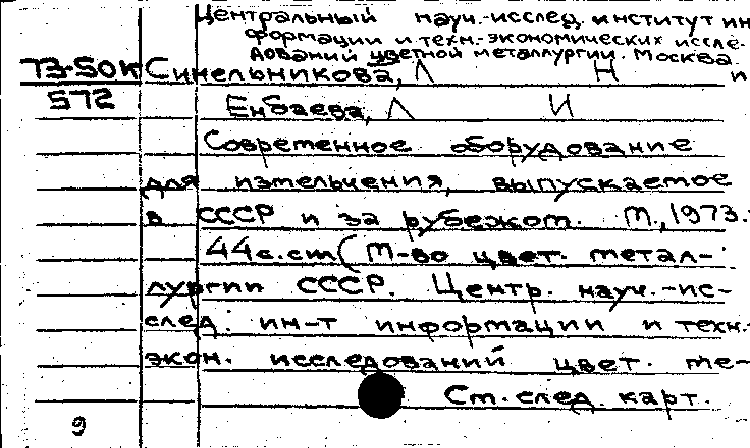 Центральный науч.-исслед. институт ин
формации и техн.-экономических иссле-
дований цветной металлургии. Москва.
73-50к Синельникова, Л Н и
572 Енбаева, Л И
Современное оборудование
для измельчения, выпускаемое
в СССР и за рубежом. М., 1973.
44с.см (М-во цвет. метал-
лургии СССР. Центр. науч.-ис-
след. ин-т информации и техн.-
экон. исследований цвет. ме-
См. след. карт.
9